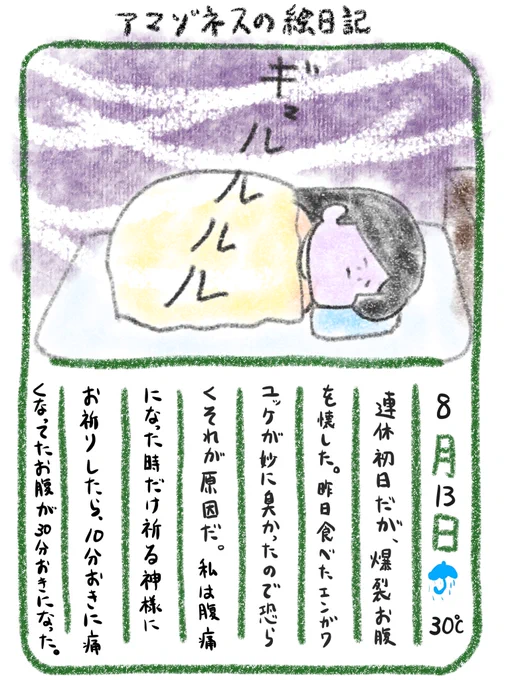 アマゾネスの絵日記
ギュルルルル
8月13日 30℃
連休初日だが、爆裂お腹
を壊した。昨日食べたエンガワ
ユッケが妙に臭かったので恐ら
くそれが原因だ。私は腹痛
になった時だけ祈る神様に
お祈りしたら、10分おきに痛
くなってたお腹が30分おきになった。